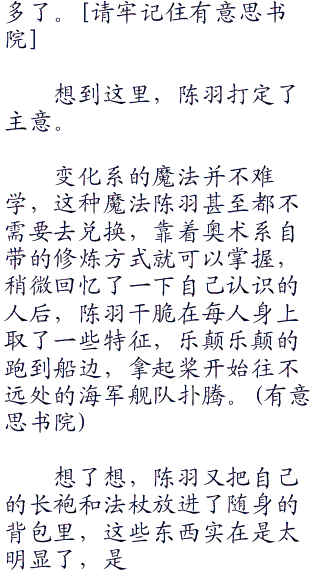 多了。[请牢记住有意思书
院]
想到这里，陈羽打定了
主意。
变化系的魔法并不难
学，这种魔法陈羽甚至都不
需要去兑换，靠着奥术系自
带的修炼方式就可以掌握，
稍微回忆了一下自己认识的
人后，陈羽干脆在每人身上
取了一些特征，乐颠乐颠的
跑到船边，拿起桨开始往不
远处的海军舰队扑腾。(有意
思书院)
想了想，陈羽又把自己
的长袍和法杖放进了随身的
背包里，这些东西实在是太
明显了，是